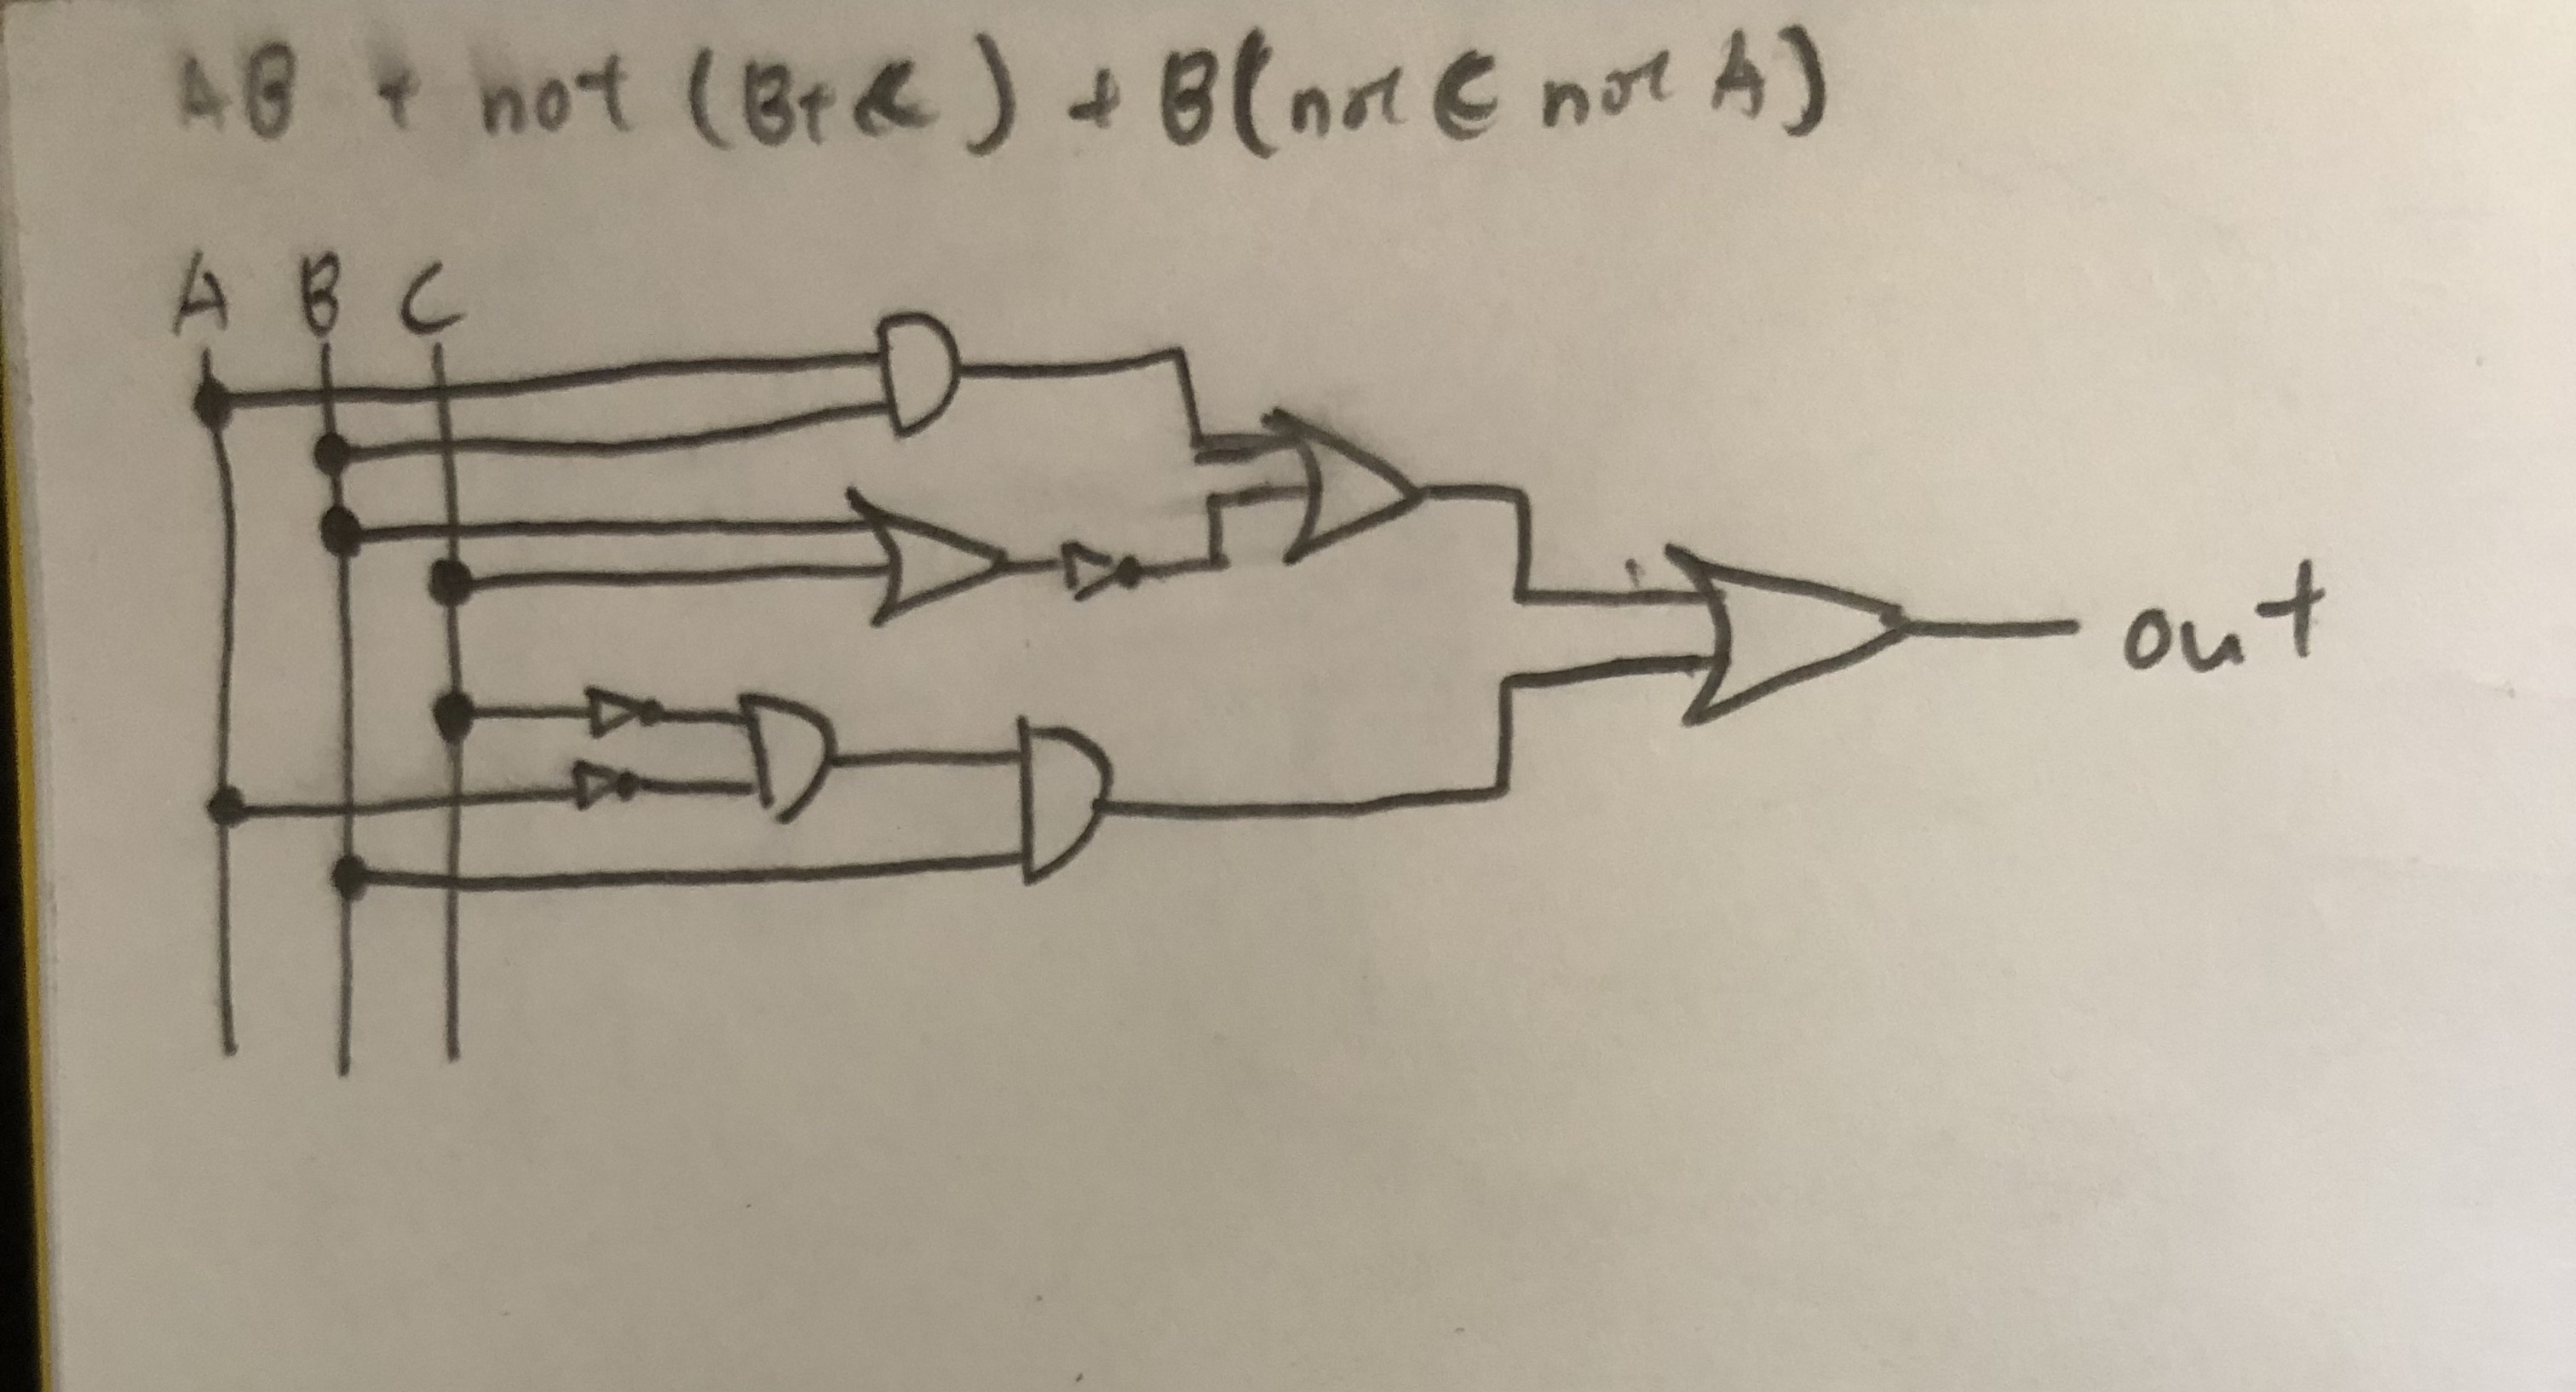 AB + not (B+C) + B(not C not A)
A B C
out